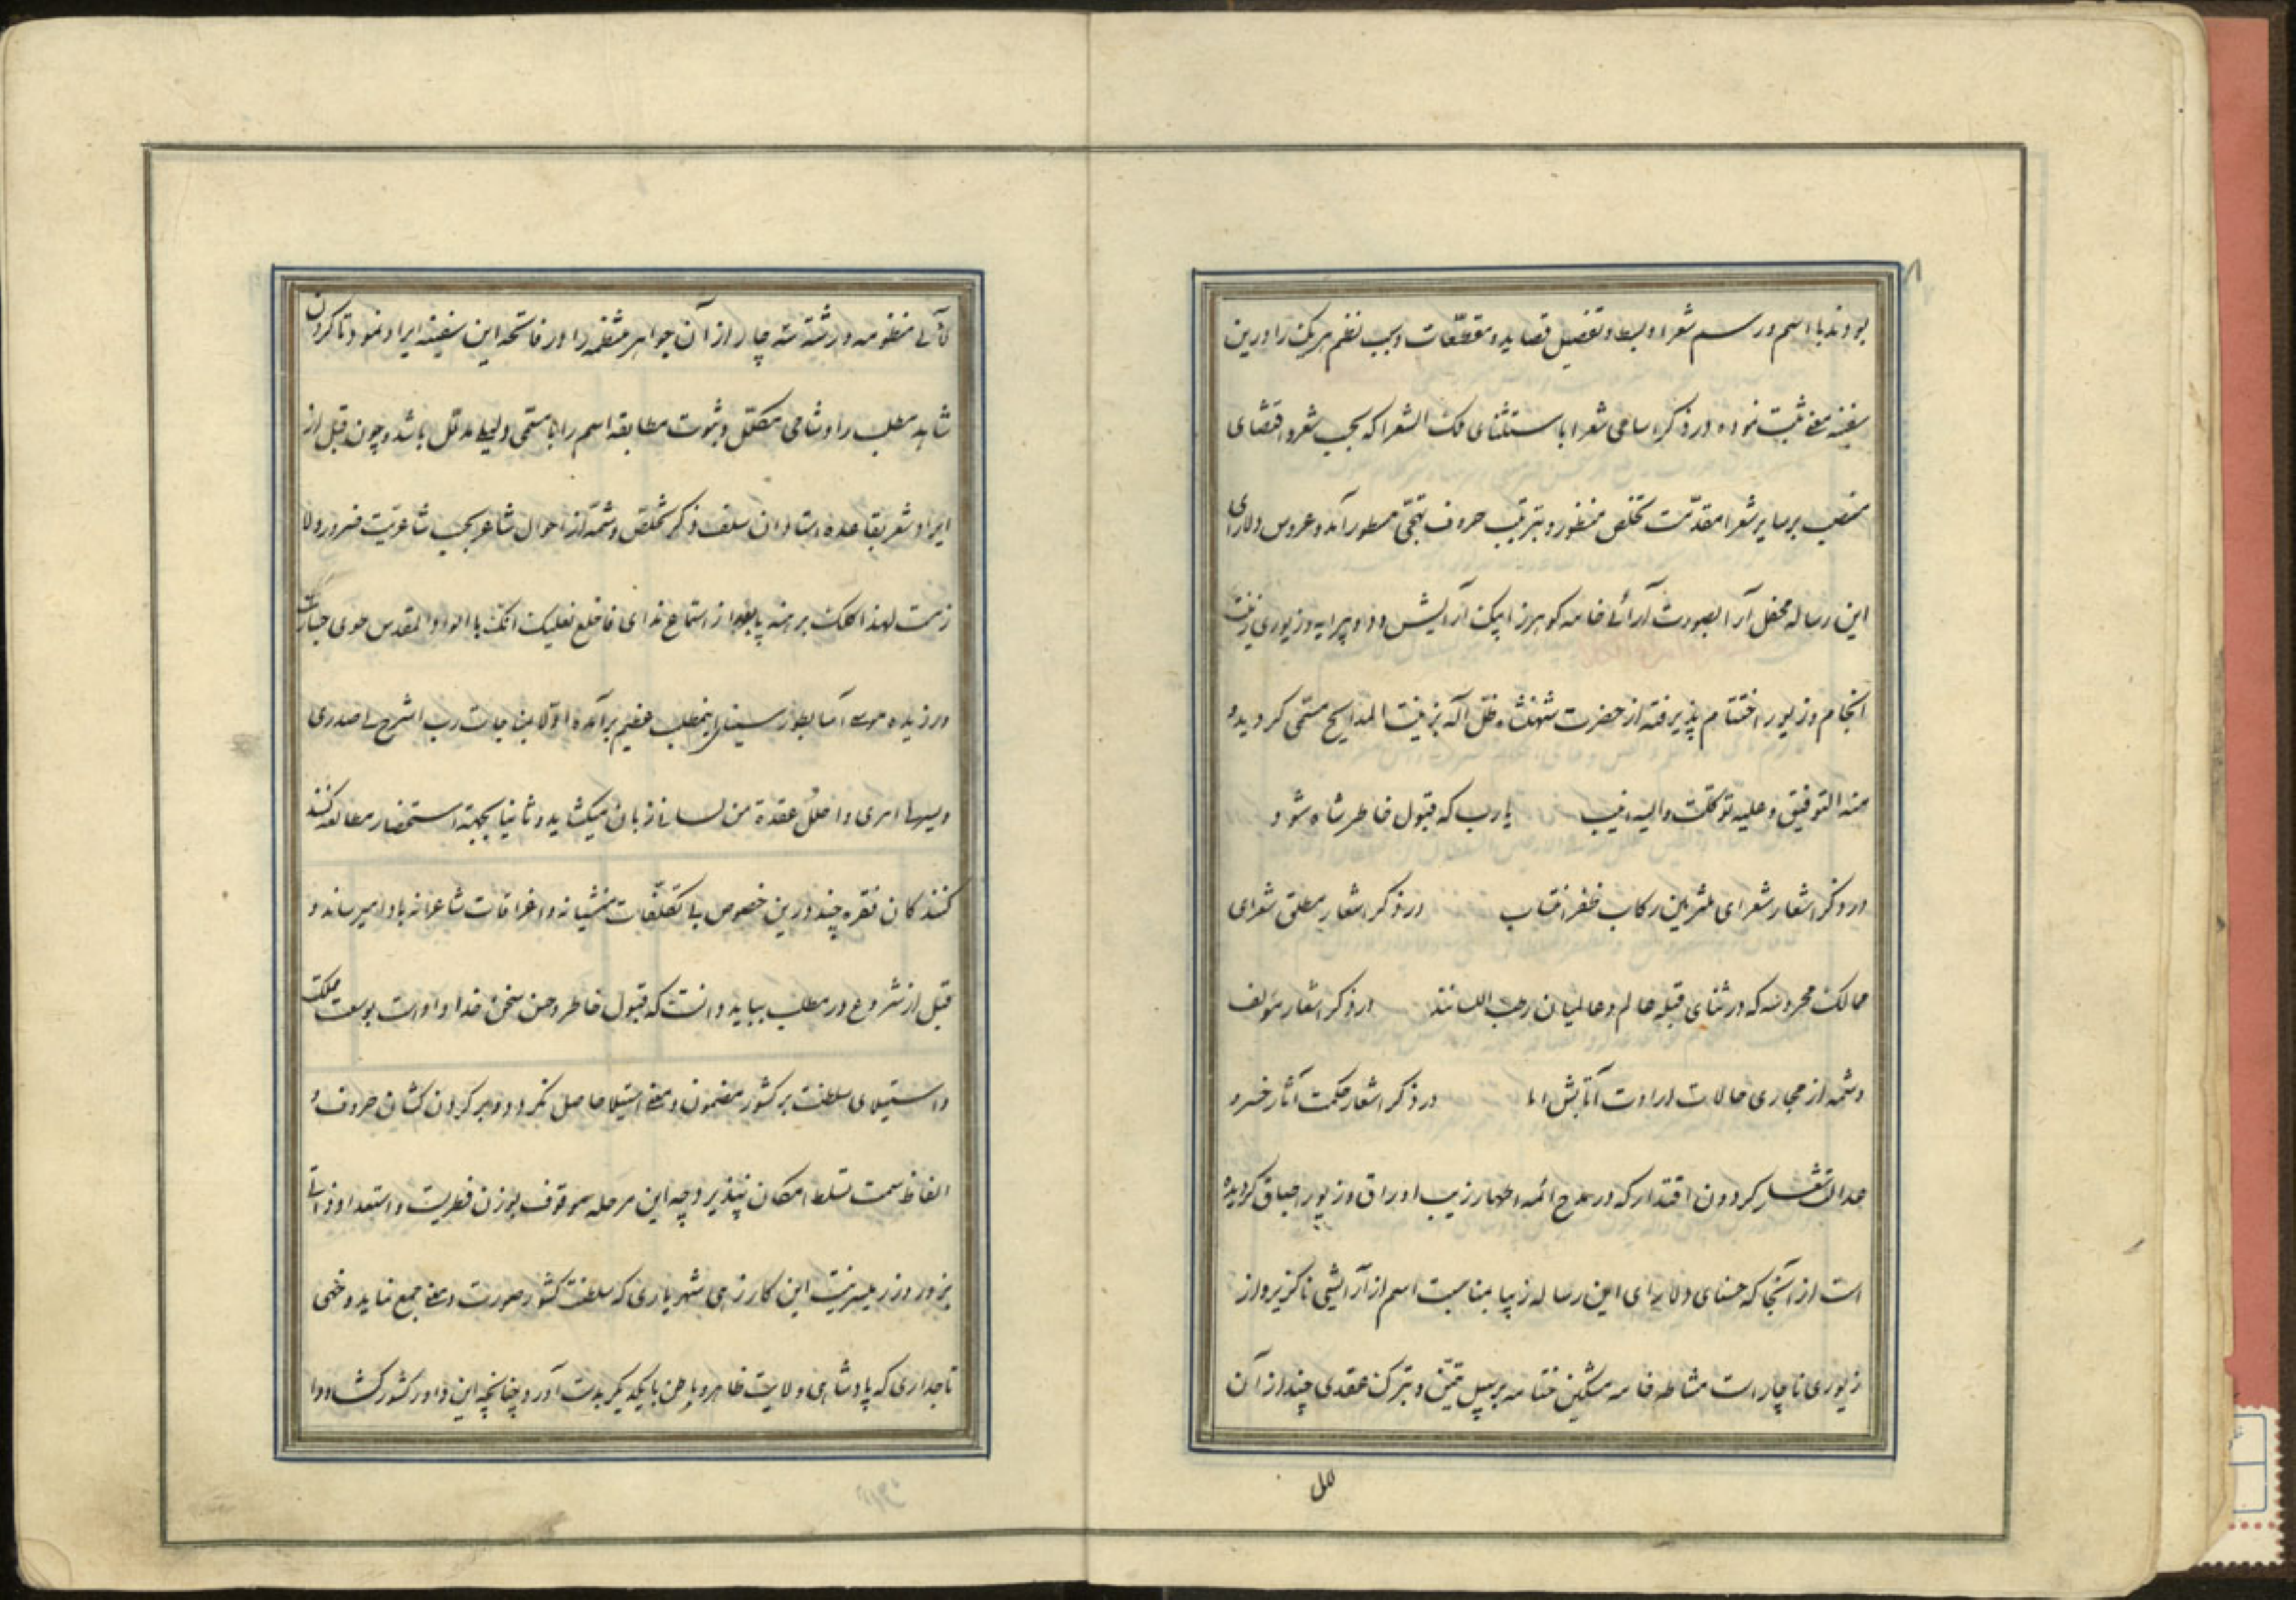 بودند با اسم و رسم شعرا و بسط و تفصیل قصاید و مقطعات و سبب نظم هریک را درین
سفینه معنی ثبت نموده در ذکر اسامی شعرا باستثنای ملک الشعرا که بحسب شعر و اقتضای
منصب بر سایر شعرا مقدّمست تخلص منظور و بترتیب حروف تهجّی مسطور آمد و عروس دلارای
این رساله محفل آرا بصورت آرائی خامه گوهرزا پیک آرایش داد و پیرایه و زیوری زینت
انجام و زیور اختتام پذیرفته از حضرت شهنشاه ظلّ اله بزینت المدایح مسمّی گردید و
منه التوفیق و علیه توکلت و الیه انیب یارب که قبول خاطر شاه شود
در ذکر اشعار شعرای ملتزمین رکاب ظفر انتساب در ذکر اشعار مطلق شعرای
ممالک محروسه که در ثنای قبله عالم و عالمیان رطب اللسانند در ذکر اشعار مؤلف
و شمه از مجاری حالات ارادت در ذکر اشعار حکمت آثار خسرو
عدالت شعار گردون اقتدار که در مدح ائمه اطهار زیب اوراق و زیور اطباق گردیده
است از آنجا که حسنای دلارای این رساله زیبا بمناسبت اسم از آرایشی ناگزیر و از
زیوری ناچار است مشاطه خامه مشکین ختامه بر سبیل تیمّن و تبرک عقدی چند از آن
لآلی
لآلی منظومه و رشته سه چار از آن جواهر منظمه را در فاتحه این سفینه ایراد نمود تا گردن
شاهد مطلب را وشاحی مکلّل و ثبوت مطابقه اسم را با مسمّی دلیلی مدلّل باشد و چون قبل از
ایراد شعر بقاعده استادان سلف ذکر تخلص و شمّه از احوال شاعر بحسب شاعریت ضرور و لا
زمست لهذا کلک برهنه پا بعد از استماع ندای فاخلع نعلیک انّک بالواد المقدس طوی جسارت
ورزیده موسی آسا بطور سینای اینمطلب عظیم برآمده اوّلا بمناجات رب اشرح لی صدری
و یسر لی امری و احلل عقدة من لسانی زبان میگشاید و ثانیا بجهة استحضار مطالعه کنند
کنندکان فقره چند درین خصوص بی تکلّفات منشیانه و اغراقات شاعرانه بادا میرساند و
قبل از شروع در مطلب بباید دانست که قبول خاطر و حسن سخن خداداد است بوسعت مملکت
و استیلای سلطنت بر کشور مضمون و معنی استیلا حاصل نگردد و بر گردن کشان حروف و
الفاظ سمت تسلط امکان نپذیرد چه این مرحله موقوف بوزن فطریست و استعداد ذاتی
بزور و زر میسر نیست این کار زهی شهریاری که سلطنت کشور صورت و معنی جمع نماید و خهی
تاجداری که پادشاهی ولایت ظاهر و باطن با یکدیگر بدست آورد چنانچه این داور کشورگشا و دا